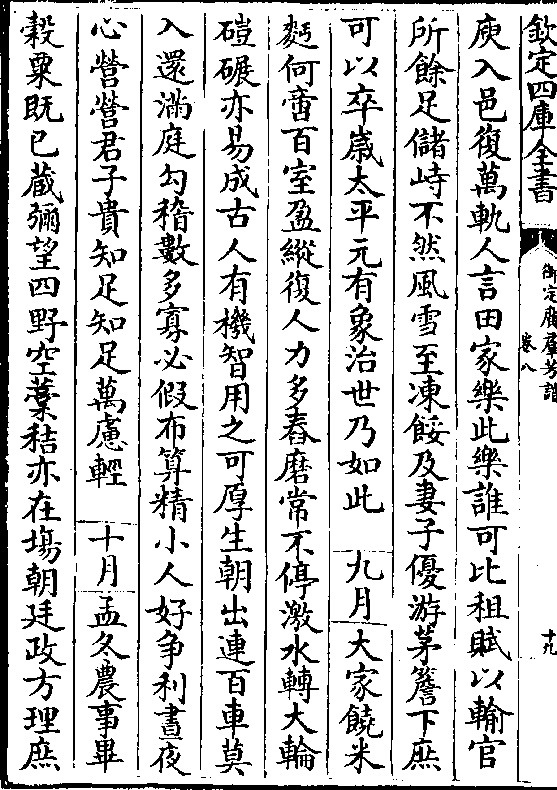 欽定四庫全書
御定廣羣芳譜
卷八
十九
庾入邑復萬軌人言田家樂此樂誰可比租賦以輸官
所餘足儲峙不然風雪至凍餒及妻子優游茅簷下庶
可以卒歲太平元有象治世乃如此 九月 大家饒米
麪何啻百室盈縱復人力多舂磨常不停激水轉大輪
磑碾亦易成古人有機智用之可厚生朝出連百車莫
入還滿庭勾稽數多寡必假布算精小人好争利晝夜
心營營君子貴知足知足萬慮輕 十月 孟冬農事畢
穀粟既已藏彌望四野空藳秸亦在塲朝廷政方理庶